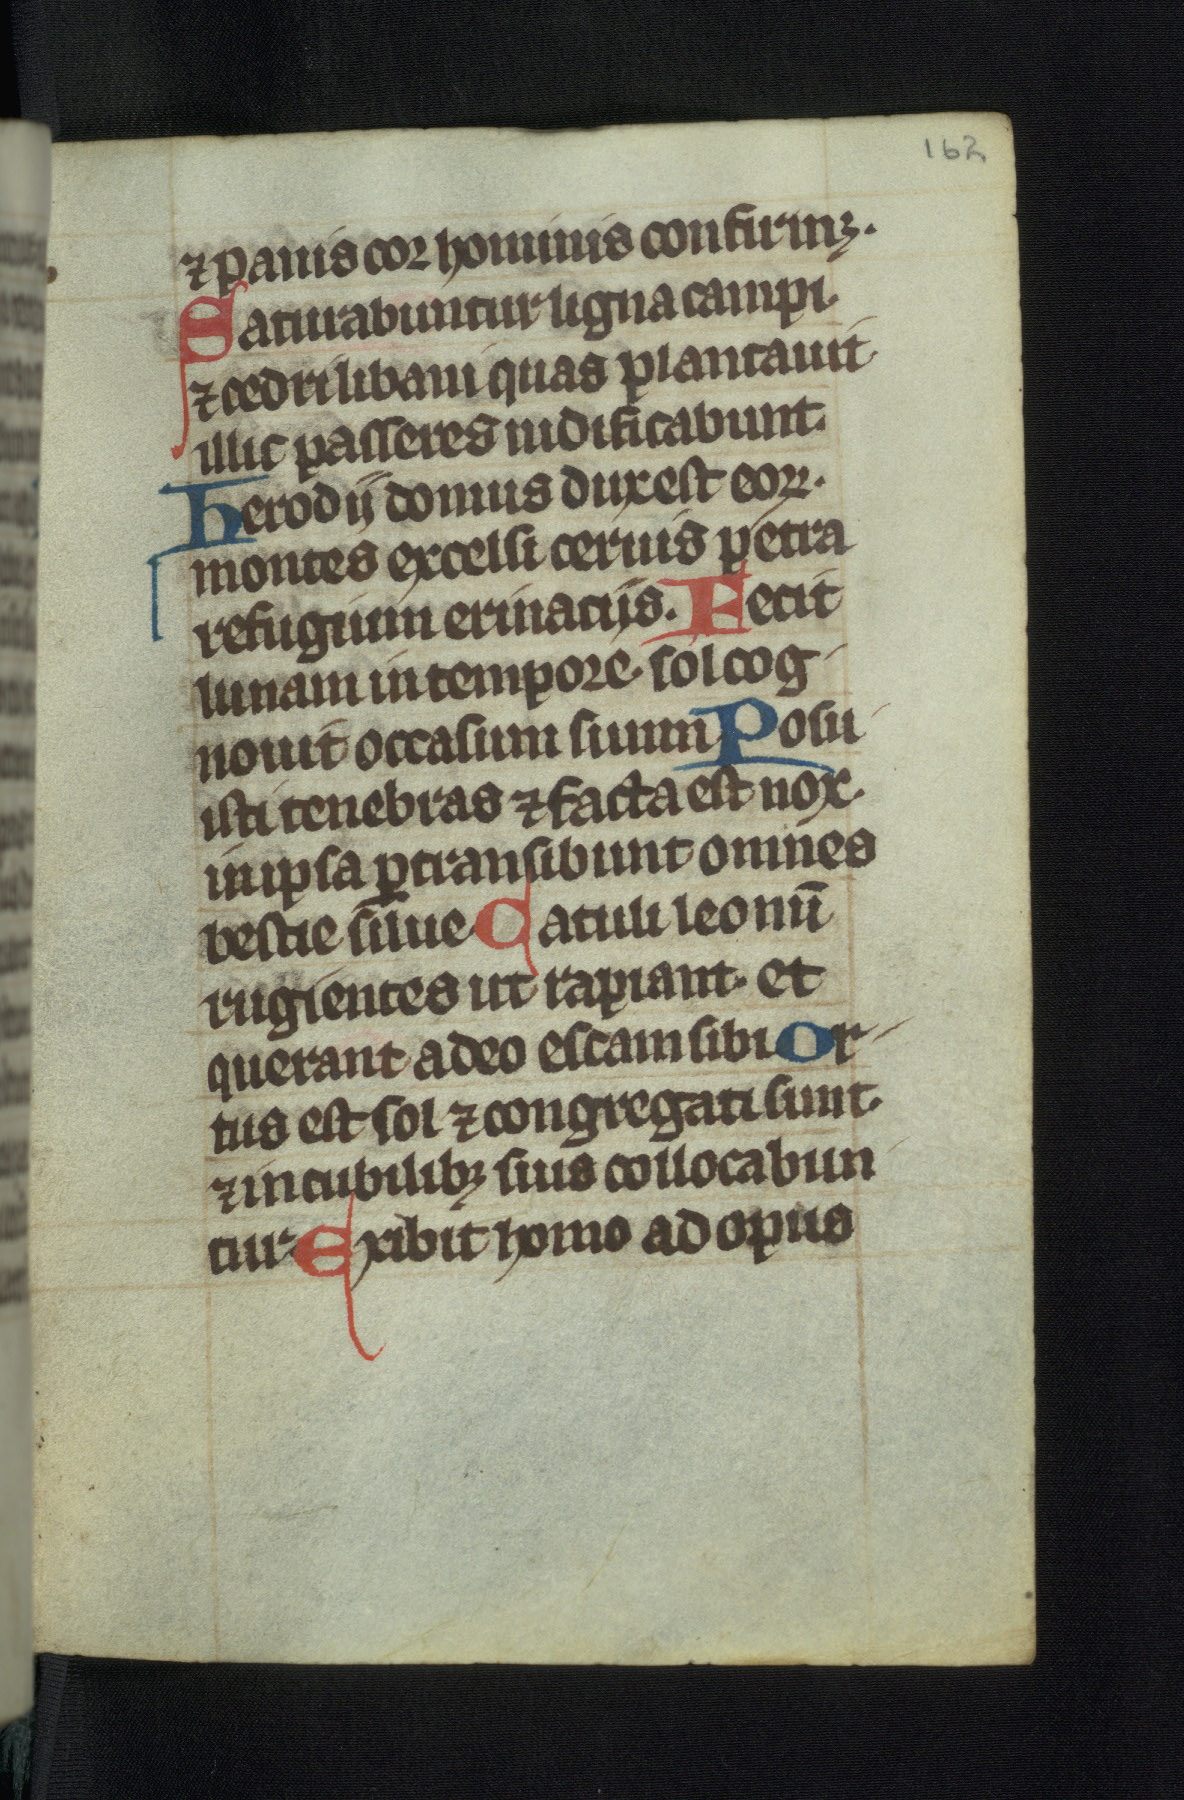 162
⁊ panis cor hominis confirmꝫ.
Saturabuntur ligna campi.
⁊ cedri libani quas plantauit.
illic passeres nidificabunt.
Herodij domus dux est eoꝝ.
montes excelsi ceruis petra
refugium erinacijs. Fecit
lunam in tempore. sol cog
nouit occasum suum Posu
isti tenebras ⁊ facta est nox.
in ipsa ꝑtransibunt omnes
bestie silue Catuli leonū
rugientes ut rapiant. et
querant adeo escam sibi Or
tus est sol ⁊ congregati sunt.
⁊ in cubilibꝫ suis collocabun
tur. Exibit homo ad opus